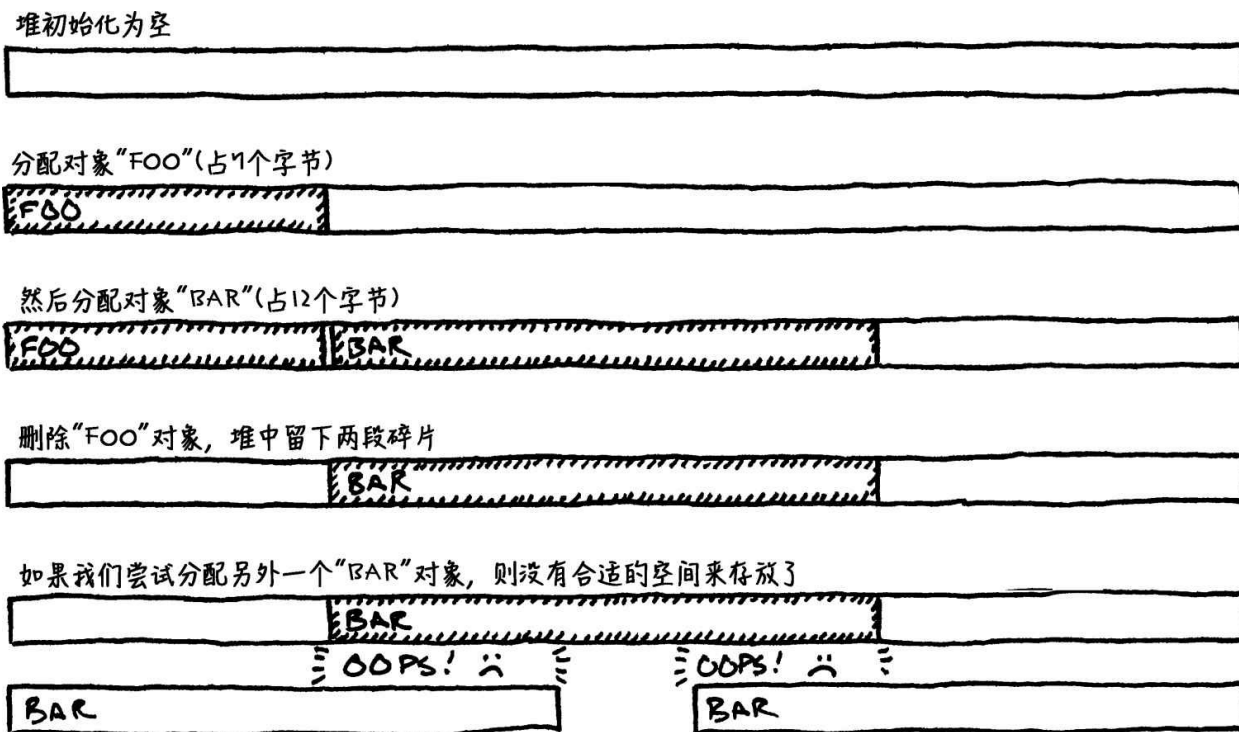 堆初始化为空
分配对象“FOO”(占7个字节)
FOO
然后分配对象“BAR”(占12个字节)
FOO BAR
删除“FOO”对象,堆中留下两段碎片
BAR
如果我们尝试分配另外一个“BAR”对象,则没有合适的空间来存放了
BAR
OOPS! OOPS!
BAR BAR